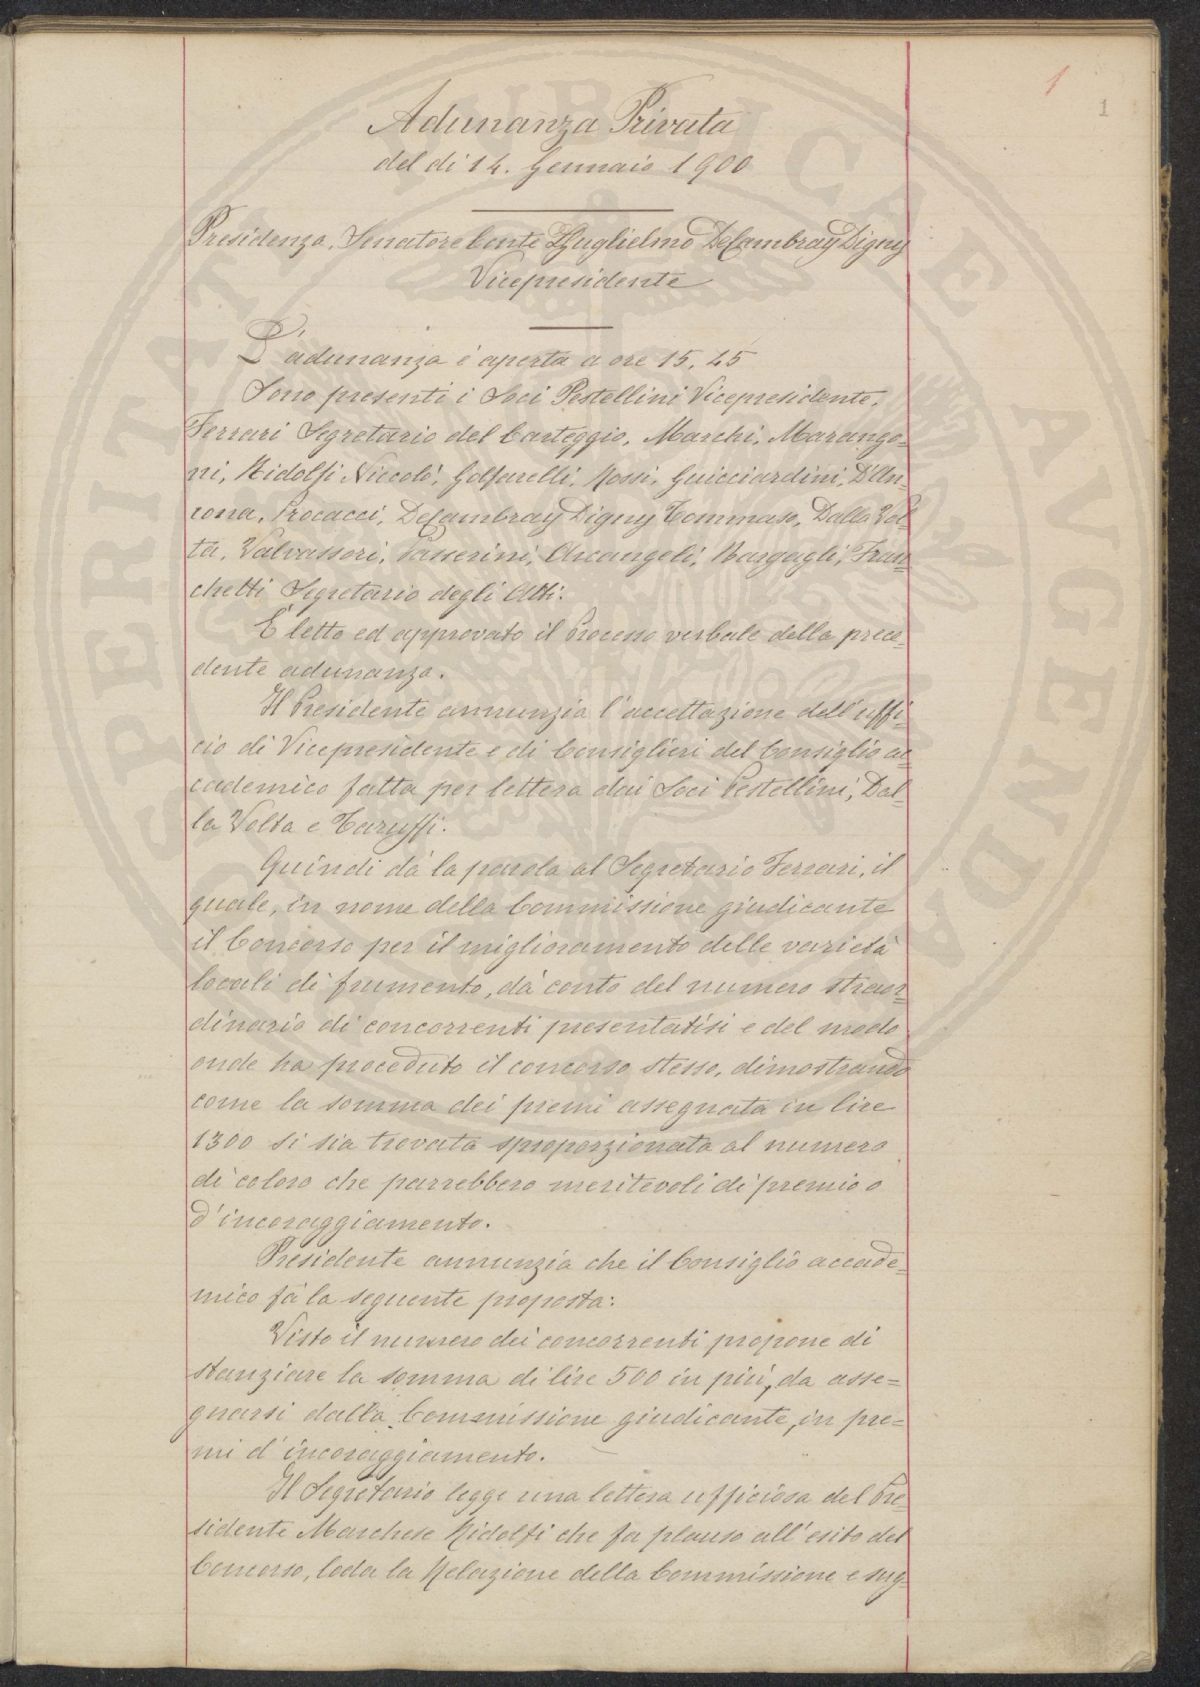 1
1
Adunanza Privata
del di 14. Gennaio 1900
Presidenza, Senatore Conte Guglielmo DeCambray Digny
Vicepresidente
L'adunanza è aperta a ore 15,45
Sono presenti i Soci Pestellini Vicepresidente,
Ferrari Segretario del Carteggio, Marchi, Marango=
ni, Ridolfi Niccolò, Golfarelli, Rossi, Guicciardini, D'An=
cona, Procacci, DeCambray Digny Tommaso, Dalla Vol=
ta, Valvassori, Passerini, Arcangeli, Bargagli, Fran=
chetti Segretario degli Atti.
È letto ed approvato il Processo verbale della prece=
dente adunanza.
Il Presidente annunzia l'accettazione dell'uffi=
cio di Vicepresidente e di Consiglieri del Consiglio ac=
cademico fatta per lettera dai Soci Pestellini, Dal=
la Volta e Taruffi.
Quindi dà la parola al Segretario Ferrari, il
quale, in nome della Commissione giudicante
il Concorso per il miglioramento delle varietà
locali di frumento, dà conto del numero straor=
dinario di concorrenti presentatisi e del modo
onde ha proceduto il concorso stesso, dimostrando
come la somma dei premi assegnata in lire
1300 si sia trovata sproporzionata al numero
di coloro che parrebbero meritevoli di premio o
d'incoraggiamento.
Presidente annunzia che il Consiglio accade=
mico fà la seguente proposta:
Visto il numero dei concorrenti propone di
stanziare la somma di lire 500 in più, da asse=
gnarsi dalla Commissione giudicante, in pre=
mi d'incoraggiamento.
Il Segretario legge una lettera ufficiosa del Pre=
sidente Marchese Ridolfi che fa plauso all'esito del
Concorso, loda la Relazione della Commissione e sug=
PROSPERITATI PUBLICAE AUGENDAE